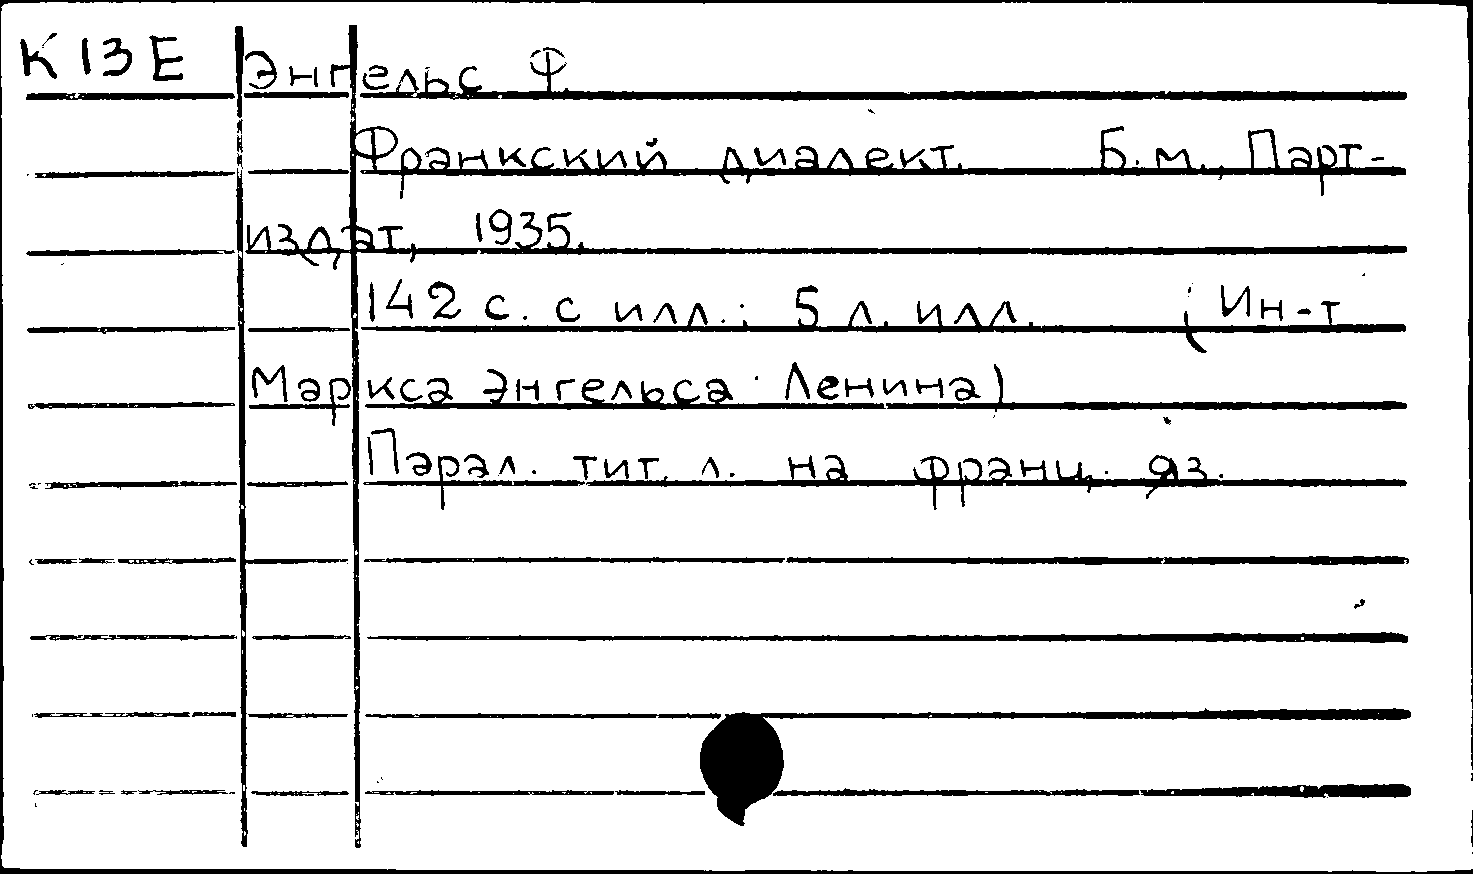 К13Е Энгельс Ф.
Франкский диалект. Б.м., Парт-
издат, 1935.
142 с. с илл.; 5 л. илл. (Ин-т
Маркса Энгельса Ленина)
Парал. тит. л. на франц. яз.